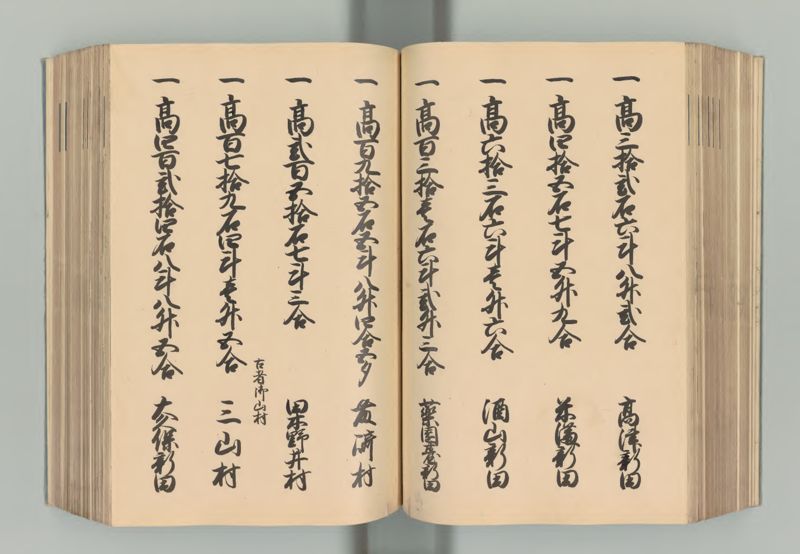 一 高三拾弐石六斗八升弐合 高津新田
一 高四拾五石七斗五升九合 米満新田
一 高六拾三石六斗壱升六合 酒山新田
一 高百三拾壱石六斗弐升三合 薬園台新田
一 高百九拾五石五斗八升四合五夕 実籾村
一 高弐百五拾石七斗三合 田木野井村
古者御山村
一 高百七拾九石四斗壱升五合 三山村
一 高四百弐拾四石八斗八升五合 大久保新田